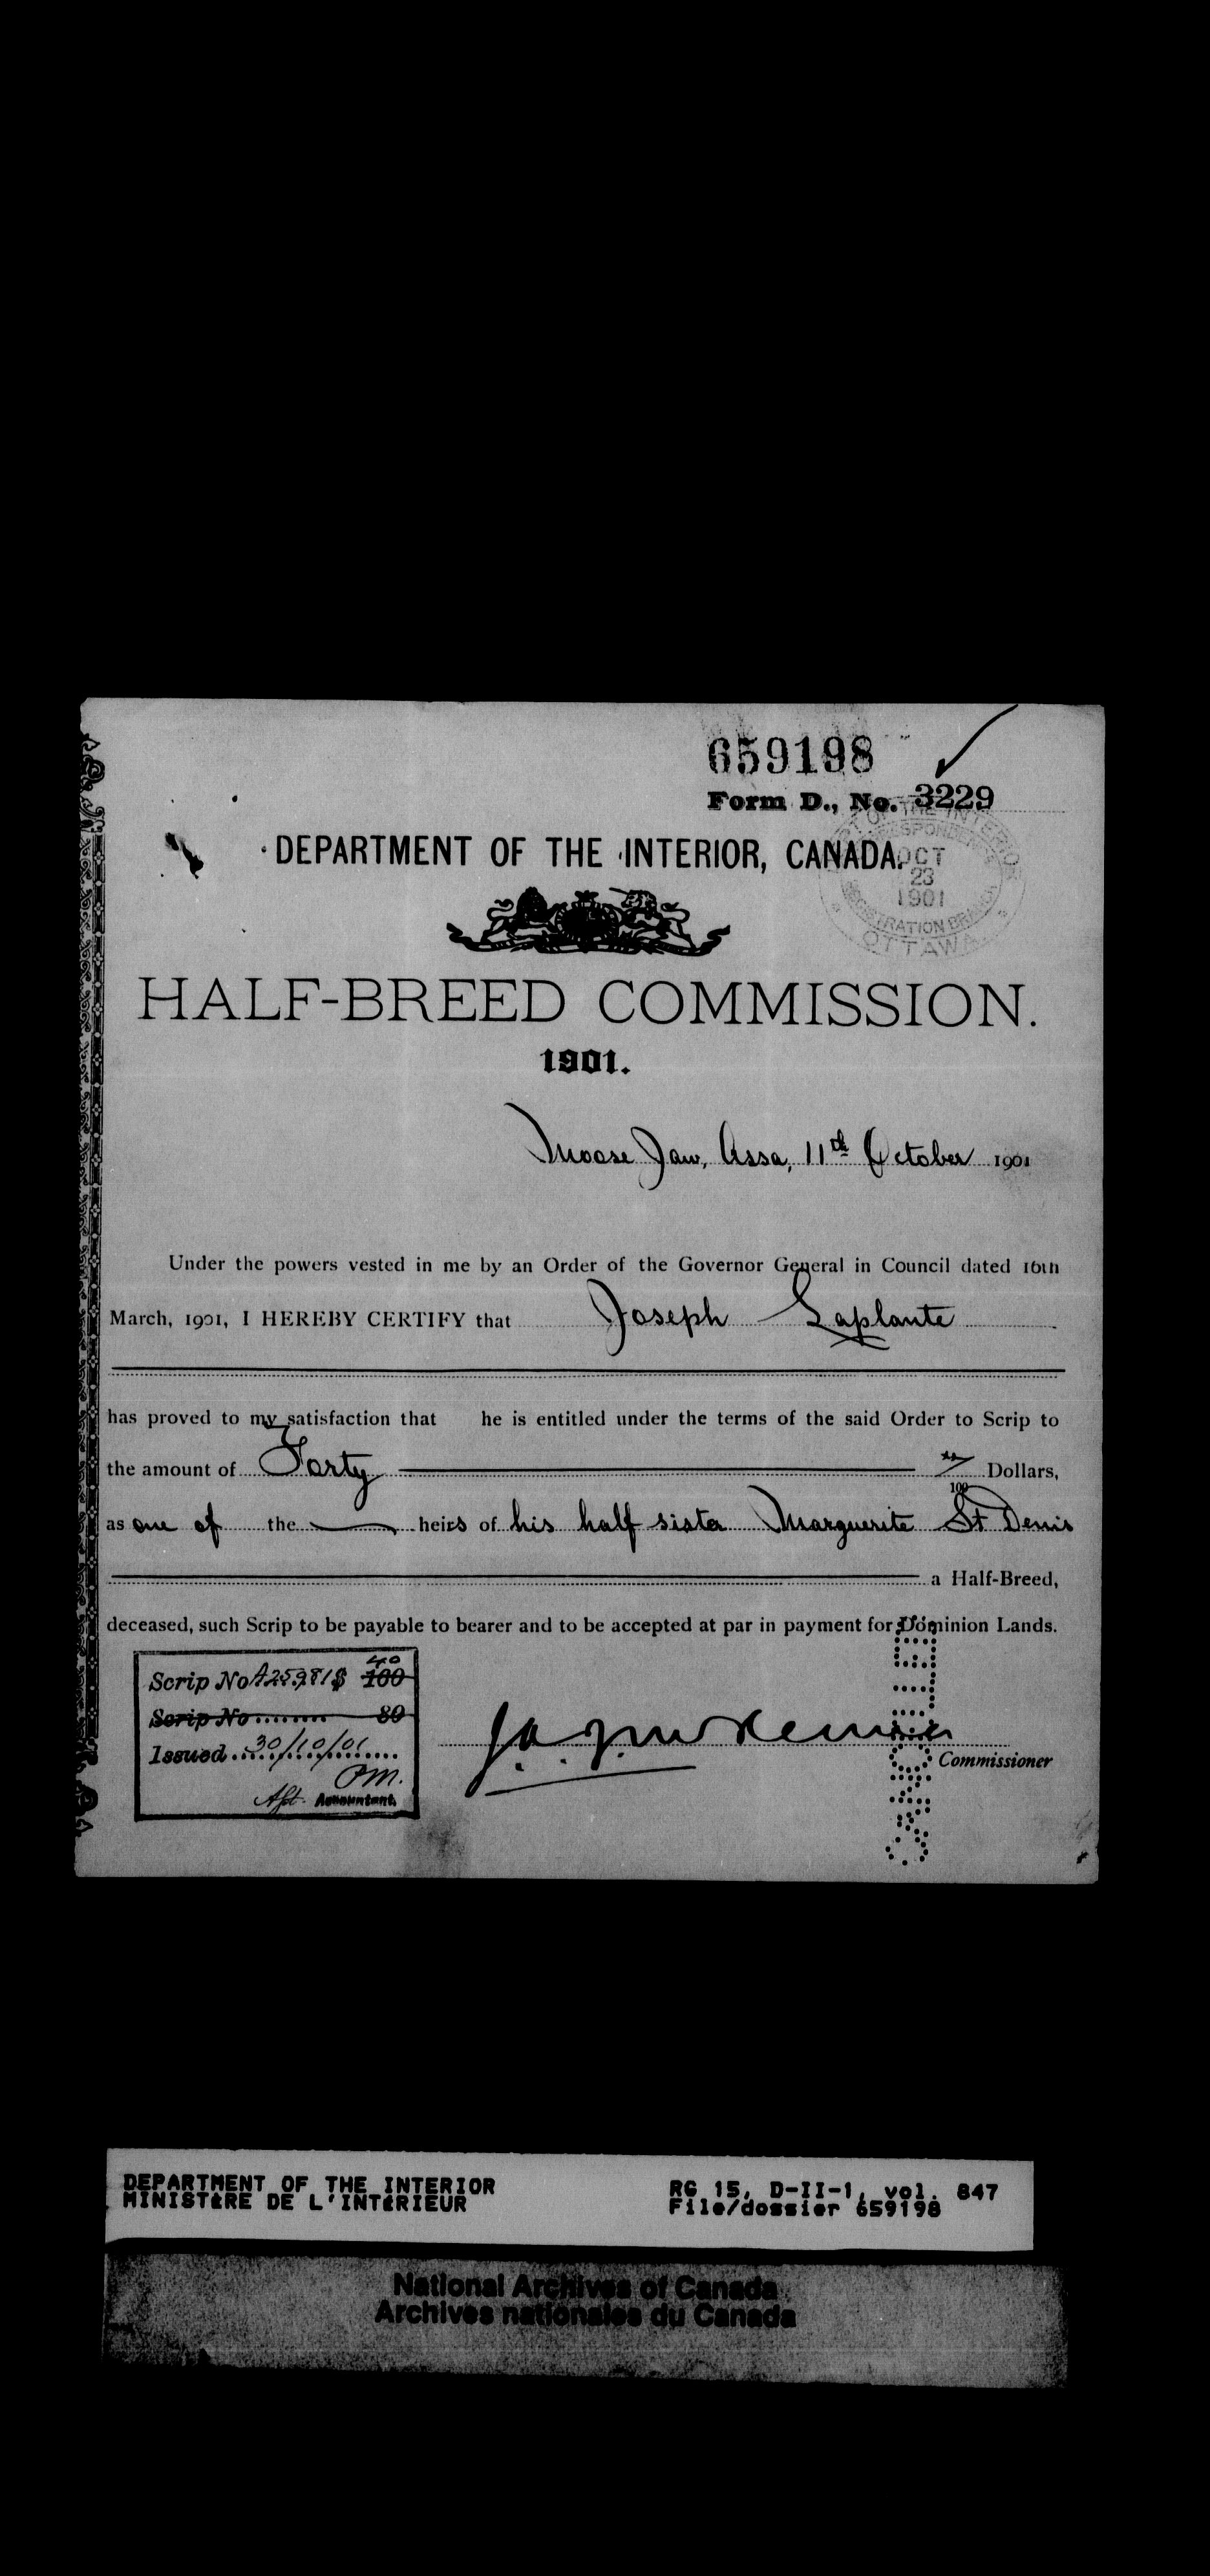 659198
Form D., No. 3229
DEPARTMENT OF THE INTERIOR, CANADA.
DEPT OF THE INTERIOR
CORRESPONDENCE
OCT
23
1901
REGISTRATION BRANCH
OTTAWA
HALF-BREED COMMISSION.
1901.
Moose Jaw, Assa, 11th October 1901
Under the powers vested in me by an Order of the Governor General in Council dated 16th
March, 1901, I HEREBY CERTIFY that Joseph Laplante
has proved to my satisfaction that he is entitled under the terms of the said Order to Scrip to
the amount of Forty xx/100 Dollars,
as one of the heirs of his half sister Marguerite St Denis
a Half-Breed,
deceased, such Scrip to be payable to bearer and to be accepted at par in payment for Dominion Lands.
Scrip No A25981 $ 100 40
Scrip No ........ 80
Issued 30/10/01
Asst. Accountant.
Commissioner
DEPARTMENT OF THE INTERIOR
MINISTÈRE DE L'INTÉRIEUR
RG 15, D-II-1, vol. 847
File/dossier 659198
National Archives of Canada
Archives nationales du Canada